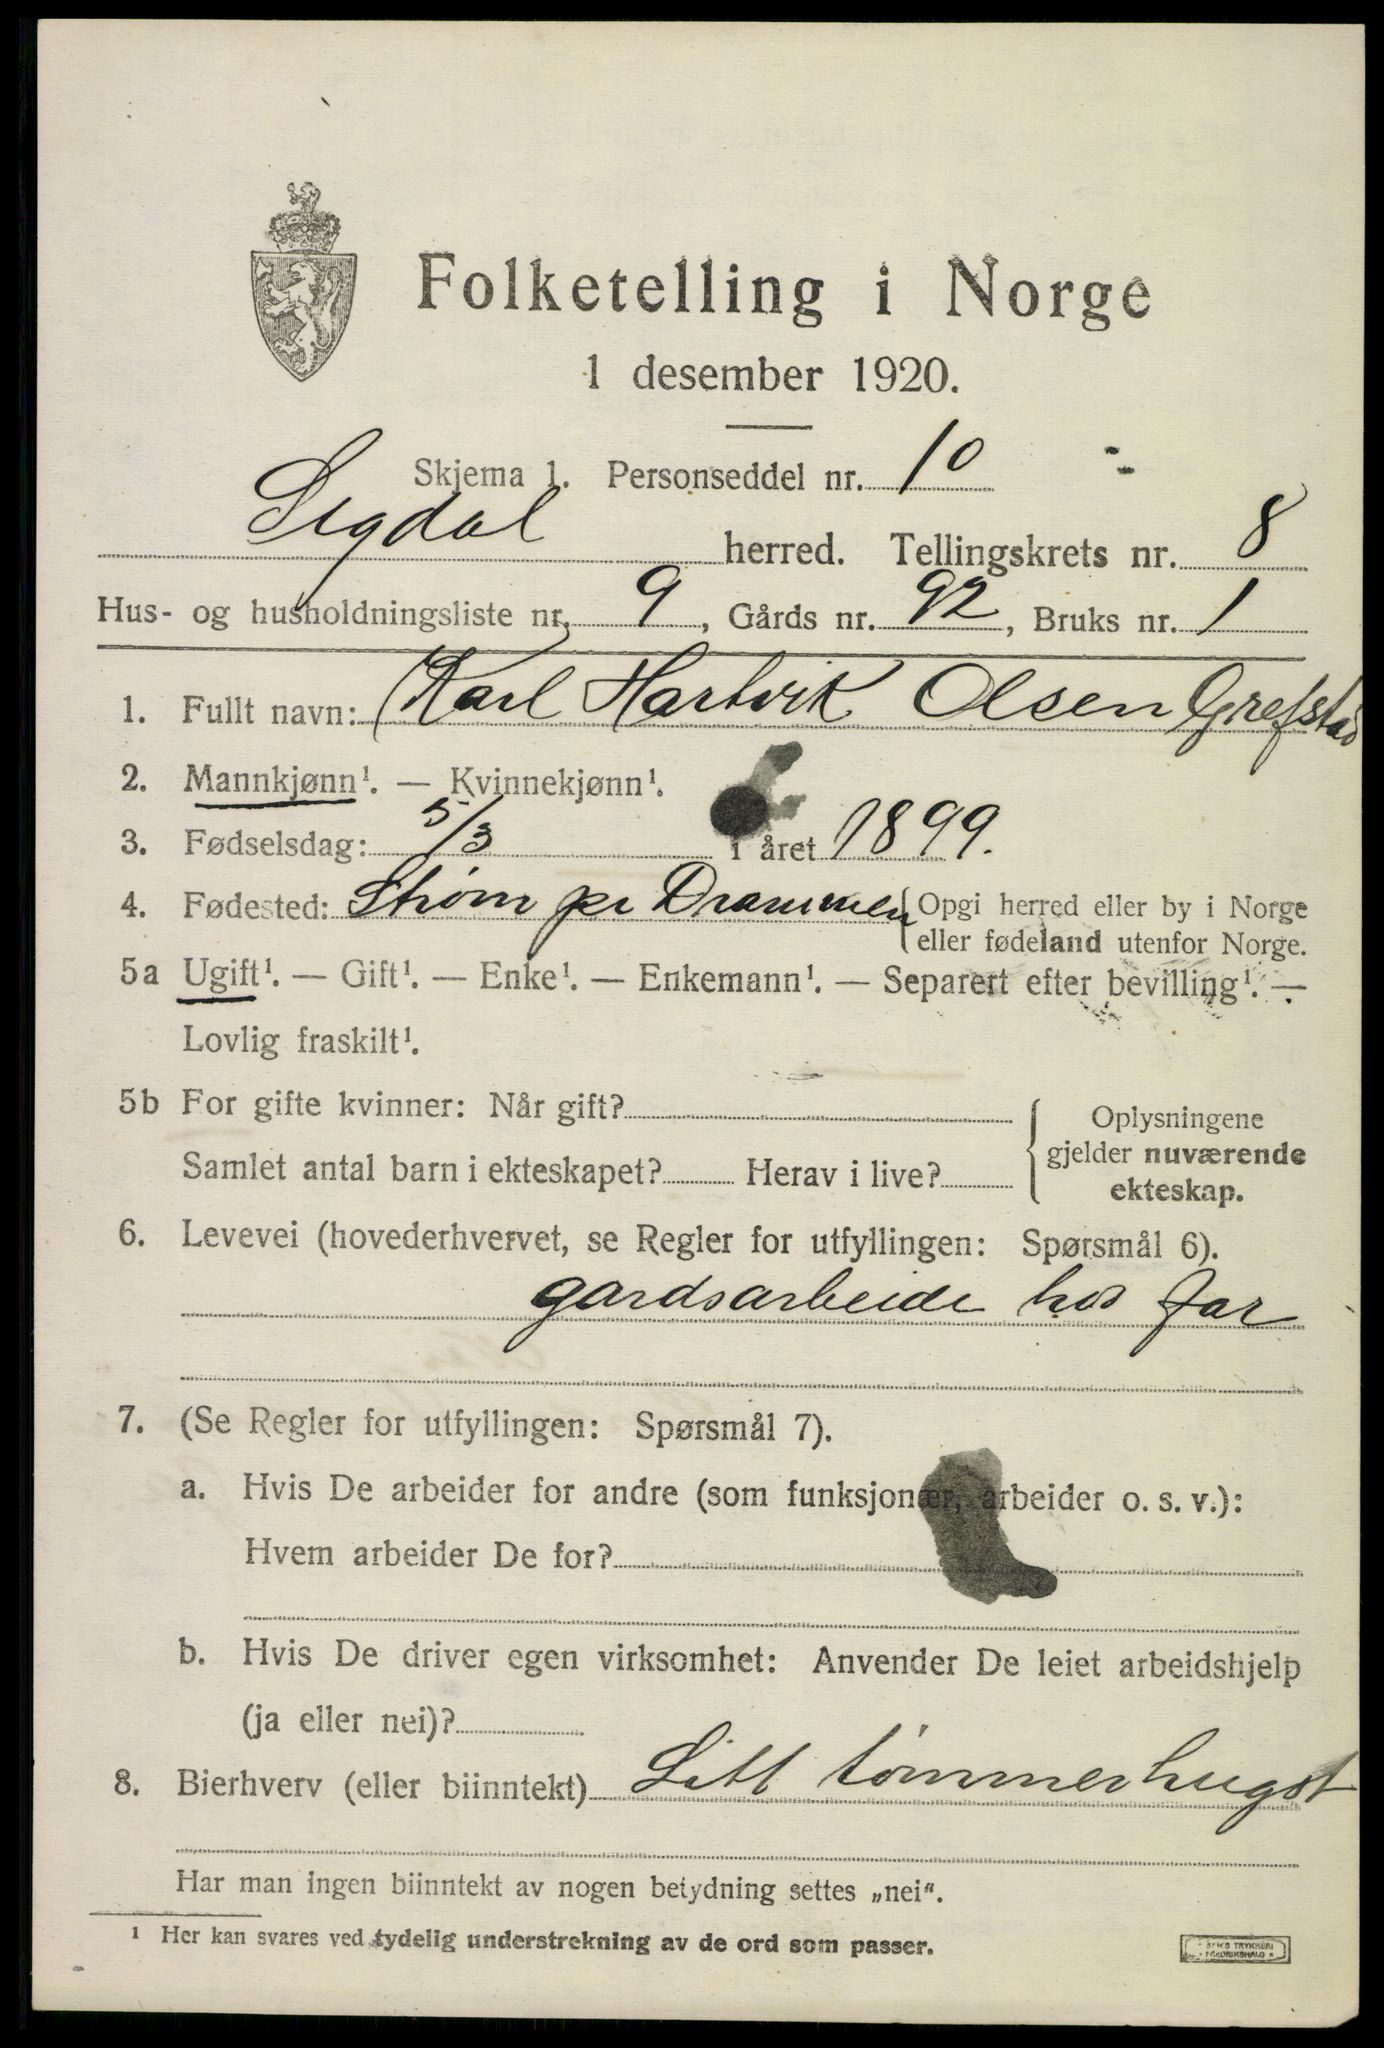 Folketelling i Norge
1 desember 1920.
Skjema 1. Personseddel nr. 10
Sigdal herred. Tellingskrets nr. 8
Hus- og husholdningsliste nr. 9, Gårds nr. 92, Bruks nr. 1
1. Fullt navn: Karl Hartvik Olsen Grefstad
2. Mannkjønn¹. — Kvinnekjønn¹.
3. Fødselsdag: 5/3 i året 1899.
4. Fødested: Strøm pr Drammen { Opgi herred eller by i Norge
eller fødeland utenfor Norge.
5a Ugift¹. — Gift¹. — Enke¹. — Enkemann¹. — Separert efter bevilling¹. —
Lovlig fraskilt¹.
5b For gifte kvinner: Når gift? { Oplysningene
gjelder nuværende
Samlet antal barn i ekteskapet? Herav i live?
ekteskap.
6. Levevei (hovederhvervet, se Regler for utfyllingen: Spørsmål 6).
gardsarbeide hos far
7. (Se Regler for utfyllingen: Spørsmål 7).
a. Hvis De arbeider for andre (som funksjonær, arbeider o. s. v.):
Hvem arbeider De for?
b. Hvis De driver egen virksomhet: Anvender De leiet arbeidshjelp
(ja eller nei)?
8. Bierhverv (eller biinntekt) Litt tømmerhugst
Har man ingen biinntekt av nogen betydning settes „nei“.
¹ Her kan svares ved tydelig understrekning av de ord som passer.
TRYKKERI
FREDRIKSHALD